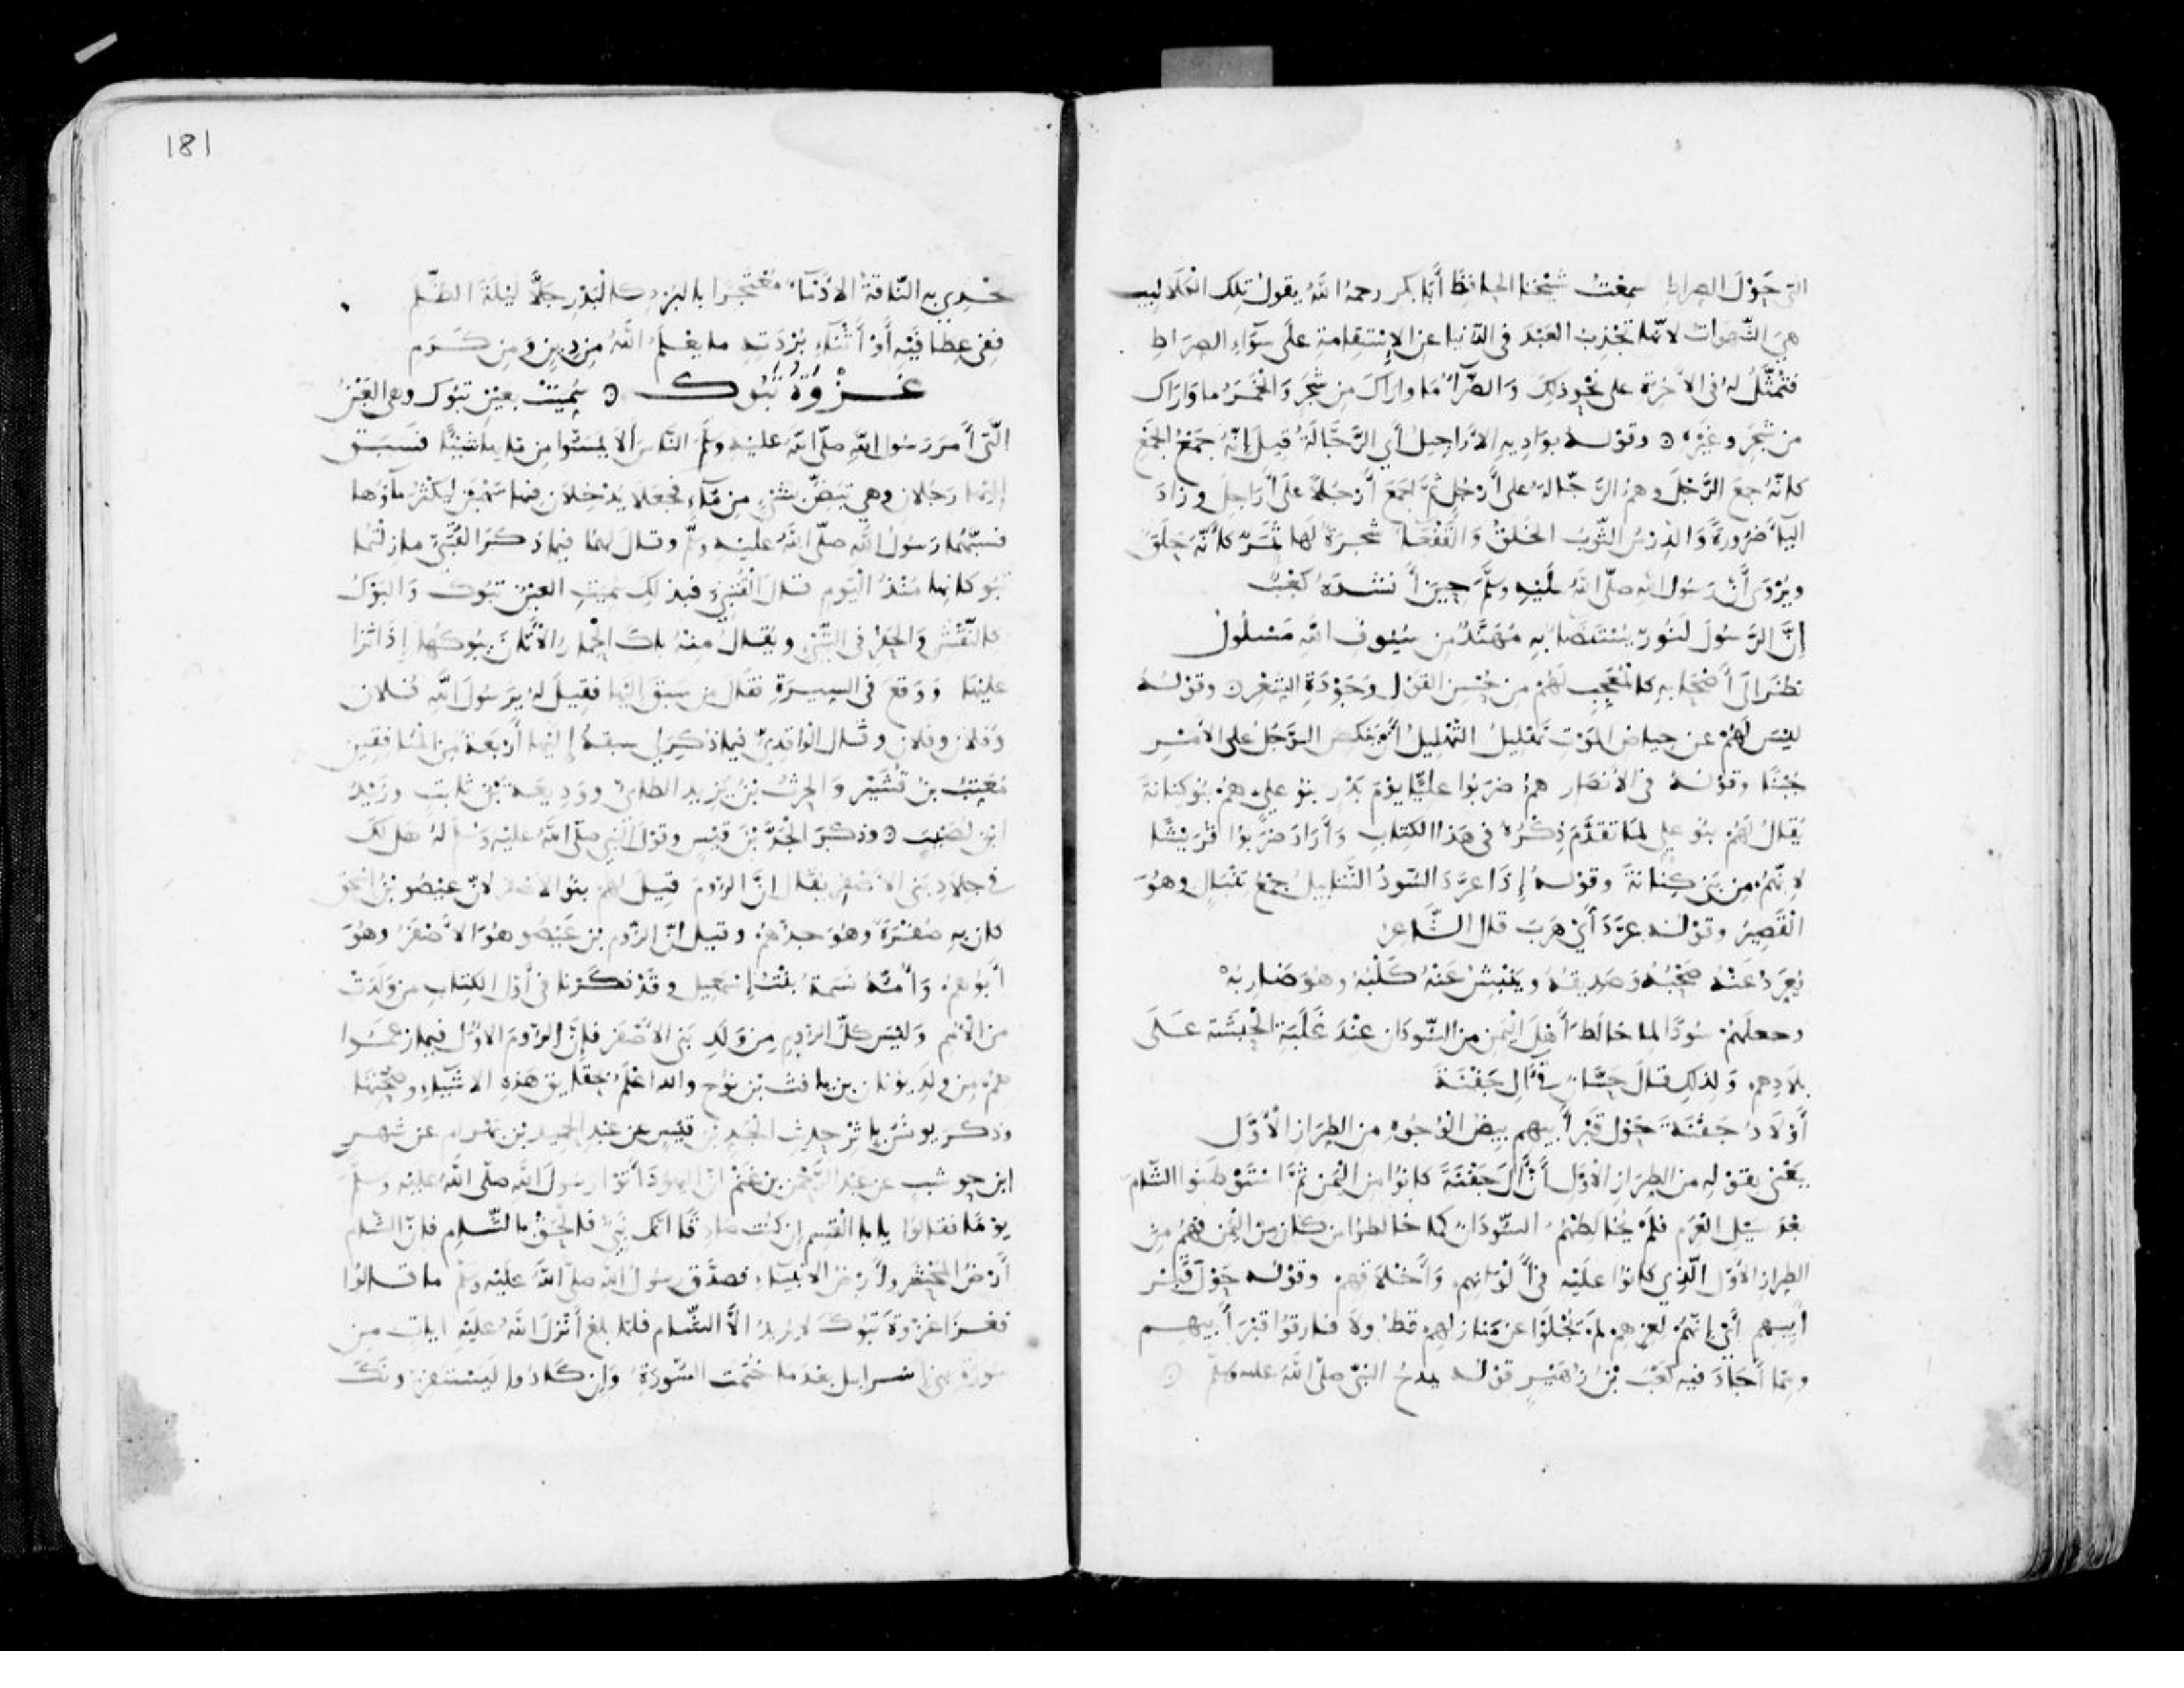 التي حول الصراط سمعت شيخنا الحافظ أبا بكر رحمه الله يقول تلك الكلاليب
هي الشهوات لانها تجذب العبد في الدنيا عن الاستقامة على سواء الصراط
فتمثل له في الآخرة على نحو ذلك والضراء ما واراك من شجر والخمر ما واراك
من شجر وغيره وقوله بواديه الاراجيل أي الرجالة قيل إنه جمع الجمع
كانه جمع الرجل وهم الرجالة على أرجل ثم جمع أرجلا على أراجل وزاد
الياء ضرورة والدرس الثوب الخلق والفقعا شجرة لها ثمر كأنه حلق
ويروى أن رسول الله صلى الله عليه وسلم حين أنشده كعب
إن الرسول لنور يستضاء به مهند من سيوف الله مسلول
نظر الى أصحابه كالمعجب لهم من حسن القول وجودة الشعر وقوله
ليس لهم عن حياض الموت تهليل التهليل أن ينكص الرجل على الأمر
جبنا وقوله في الأنصار هم ضربوا عليا يوم بدر بنو علي هم بنو كنانة
يقال لهم بنو علي لما تقدم ذكره في هذا الكتاب وأراد ضربوا قريشا
لانهم من بني كنانة وقوله إذا عرد السود التنابيل جمع تنبال وهو
القصير وقوله عرد أي هرب قال الشاعر
يعرد عنه صحبه وصديقه وينبش عنه كلبه وهو ضاربه
وجعلهم سودا لما خالط أهل اليمن من السودان عند غلبة الحبشة على
بلادهم ولذلك قال حسان في آل جفنة
أولاد جفنة حول قبر أبيهم بيض الوجوه من الطراز الأول
يعني بقوله من الطراز الأول أن آل جفنة كانوا من اليمن ثم استوطنوا الشام
بعد سيل العرم فلم يخالطهم السودان كما خالطوا من كان من اليمن فهم من
الطراز الأول الذي كانوا عليه في ألوانهم وأخلاقهم وقوله حول قبر
أبيهم أي إنهم لعزهم لم يجلوا عن منازلهم قط ولا فارقوا قبر أبيهم
ومما أجاد فيه كعب بن زهير قوله يمدح النبي صلى الله عليه وسلم
181
تخدي به الناقة الادماء معتجرا بالبرد كالبدر جلا ليلة الظلم
ففي عطافيه أو أثناء بردته ما يعلم الله من دين ومن كرم
غزوة تبوك سميت بعين تبوك وهي العين
التي أمر رسول الله صلى الله عليه وسلم الناس ألا يمسوا من مائها شيئا فسبق
إليها رجلان وهي تبض بشيء من ماء فجعلا يدخلان فيها سهمين ليكثر ماؤها
فسبهما رسول الله صلى الله عليه وسلم وقال لهما فيما ذكر القتبي ما زلتما
تبوكانها منذ اليوم قال القتبي فبذلك سميت العين تبوك والبوك
كالنقش والحفر في الشيء ويقال منه باك الحمار الأتان يبوكها إذا نزا
عليها ووقع في السيرة فقال من سبق اليها فقيل له يرسول الله فلان
وفلان وفلان وقال الواقدي فيما ذكر لي سبقه إليها أربعة من المنافقين
معتب بن قشير والحرث بن يزيد الطائي ووديعة بن ثابت وزيد
ابن لصيت وذكر الجد بن قيس وقول النبي صلى الله عليه وسلم له هل لك
في جلاد بني الاصفر يقال ان الروم قيل لهم بنو الاصفر لان عيصو بن اسحق
كان به صفرة وهو جدهم وقيل ان الروم بن عيصو هو الأصفر وهو
أبوهم وأمه نسمة بنت إسمعيل وقد ذكرنا في أول الكتاب من ولدت
من الأمم وليس كل الروم من ولد بني الأصفر فإن الروم الأول فيما زعموا
هم من ولد يونان بن يافث بن نوح والله اعلم بحقايق هذه الاشياء وصحتها
وذكر يونس بإثر حديث الجد بن قيس عن عبد الحميد بن بهرام عن شهر
ابن حوشب عن عبد الرحمن بن غنم ان اليهود أتوا رسول الله صلى الله عليه وسلم
يوما فقالوا يابا القسم إن كنت صادقا انك نبي فالحق بالشام فان الشام
أرض المحشر وأرض الانبياء فصدق رسول الله صلى الله عليه وسلم ما قالوا
فغزا غزوة تبوك لا يريد الا الشام فلما بلغ أنزل الله عليه ايات من
سورة بني اسرايل بعد ما ختمت السورة وإن كادوا ليستفزونك